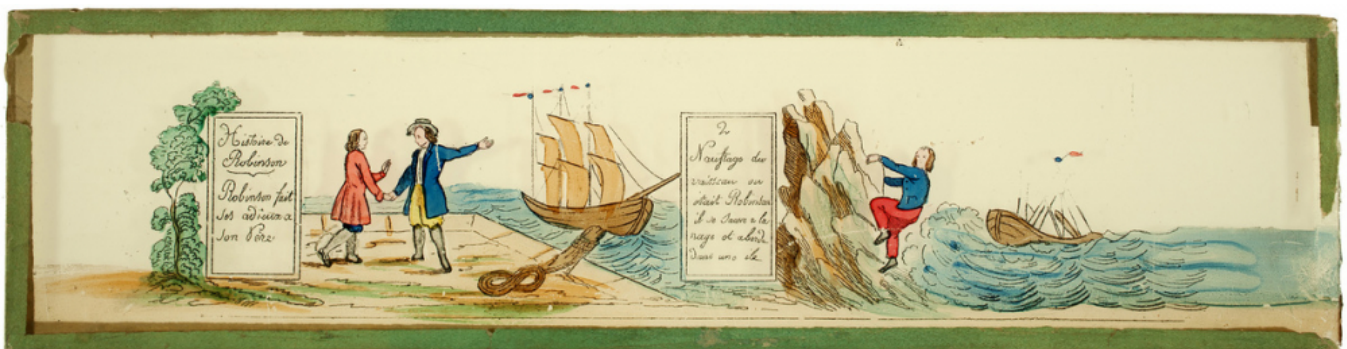 Histoire de
Robinson
Robinson fait
ses adieux a
son Père
2
Naufrage du
vaisseau ou
etait Robinson
il se sauve a la
nage et aborde
dans une ile